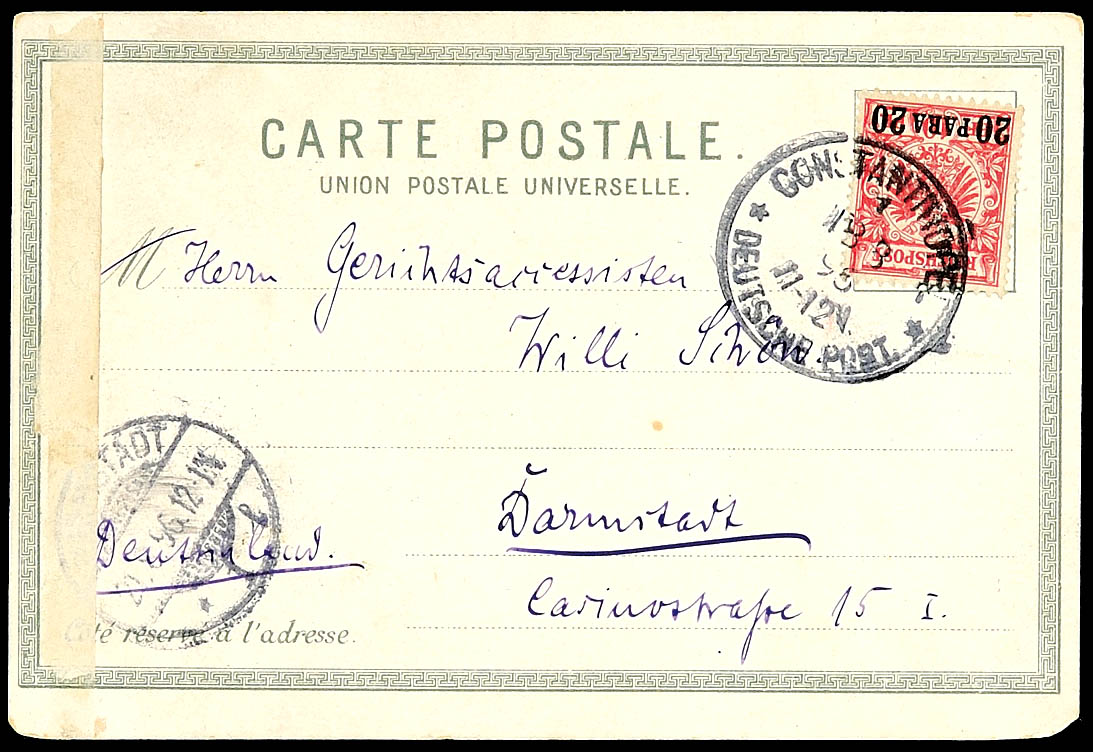 CARTE POSTALE.
UNION POSTALE UNIVERSELLE.
20 PARA 20
REICHSPOST
CONSTANTINOPEL 1
11-12V.
DEUTSCHE POST.
Herrn Gerichtsaccessisten
Willi Schön.
Darmstadt
Deutschland.
Casinostraße 15 I.
Côté réservé à l'adresse.
STADT
96 12-1N